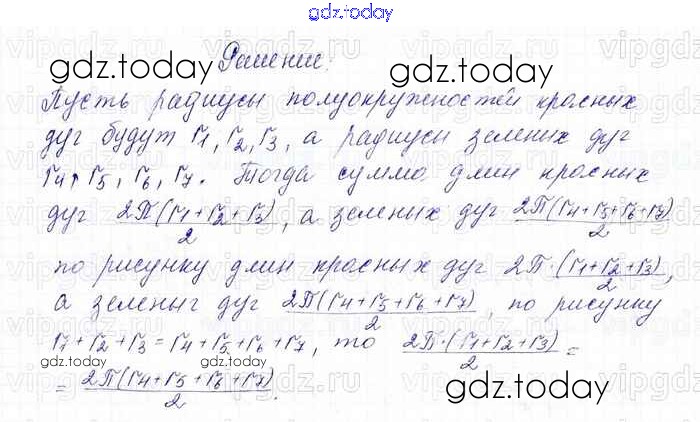 gdz.today
Решение:
Пусть радиусы полуокружностей красных
дуг будут r1, r2, r3, а радиусы зеленых дуг
r4, r5, r6, r7. Тогда сумма длин красных
дуг 2П(r1+r2+r3)/2, а зеленых дуг 2П(r4+r5+r6+r7)/2
по рисунку длин красных дуг 2П·(r1+r2+r3)/2,
а зеленыг дуг 2П(r4+r5+r6+r7)/2, по рисунку
r1+r2+r3=r4+r5+r6+r7, то 2П·(r1+r2+r3)/2 =
= 2П(r4+r5+r6+r7)/2.
gdz.today
gdz.today
gdz.today
gdz.today